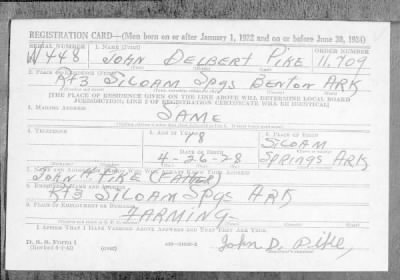 REGISTRATION CARD—(Men born on or after January 1, 1922 and on or before June 30, 1924)
SERIAL NUMBER 1. NAME (Print) ORDER NUMBER
W448 JOHN DELBERT PIKE 11,709
2. PLACE OF RESIDENCE (Print)
Rt3 SILOAM Spgs BENTON ARK
[THE PLACE OF RESIDENCE GIVEN ON THE LINE ABOVE WILL DETERMINE LOCAL BOARD
JURISDICTION; LINE 2 OF REGISTRATION CERTIFICATE WILL BE IDENTICAL]
3. MAILING ADDRESS
SAME
4. TELEPHONE 5. AGE IN YEARS 6. PLACE OF BIRTH
18 SILOAM
DATE OF BIRTH
4-26-28 SPRINGS ARK
JOHN H. PIKE (FATHER)
8. EMPLOYER'S NAME AND ADDRESS
Rt3 SILOAM Spgs ARK
9. PLACE OF EMPLOYMENT OR BUSINESS
FARMING
I AFFIRM THAT I HAVE VERIFIED ABOVE ANSWERS AND THAT THEY ARE TRUE.
D. S. S. FORM 1
(over) John D. Pike